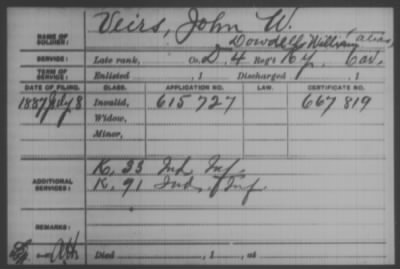 NAME OF SOLDIER: Veirs, John W.
Dowdell William (alias)
SERVICE: Late rank, Co. D, 4 Reg't Ky. Cav.
TERM OF SERVICE: Enlisted , 1 Discharged , 1
DATE OF FILING. CLASS. APPLICATION NO. LAW. CERTIFICATE NO.
1887 July 8 Invalid, 615727 667819
Widow,
Minor,
ADDITIONAL SERVICES: K. 33 Ind Inf.
K. 91 Ind. Inf
REMARKS:
and
Died , 1 , at